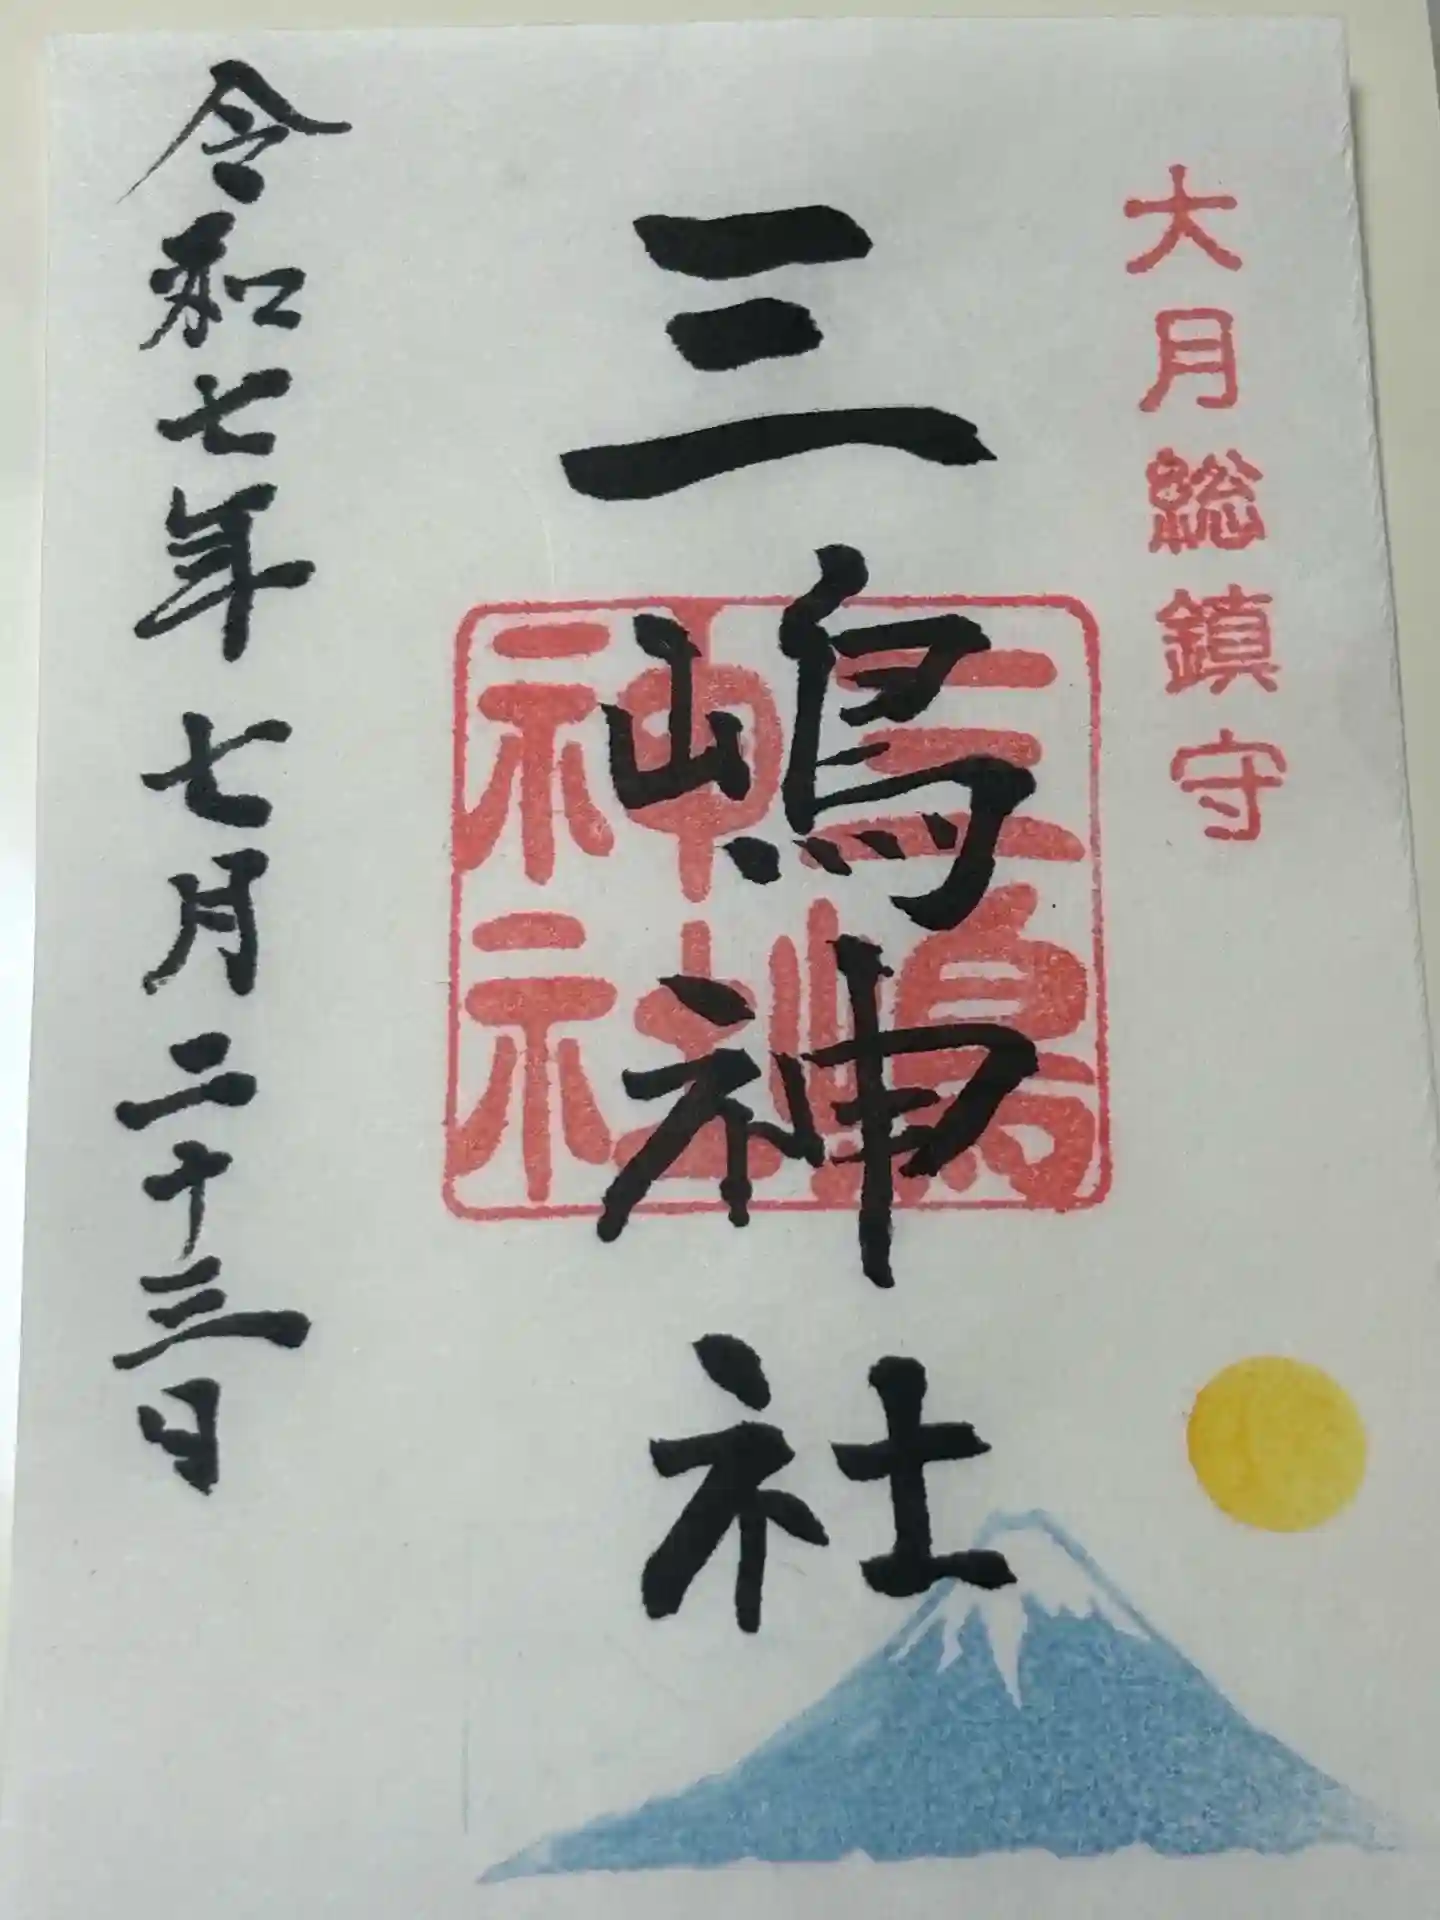 大月総鎮守
三嶋神社
三嶋神社
令和七年七月二十三日